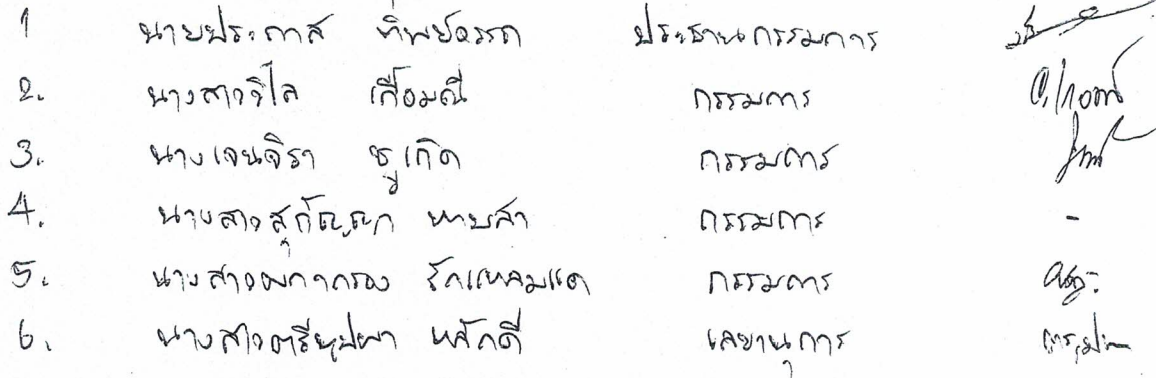 1 นายประกาส ทิพย์อรรถ ประธานกรรมการ
2. นางสาววิไล เกื้อมณี กรรมการ
3. นางเจนจิรา ชูเกิด กรรมการ
4. นางสาวสุกัญญา หาบสา กรรมการ -
5. นางสาวผกากรอง รักแหลมแค กรรมการ
6. นางสาวตรียุปผา หลักดี เลขานุการ